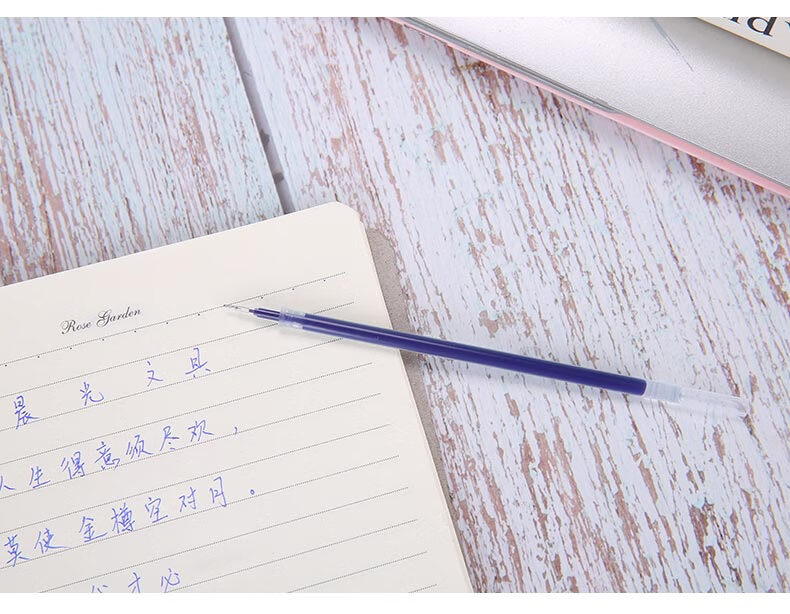 Rose Garden
晨光文具
人生得意须尽欢，
莫使金樽空对月。
才必